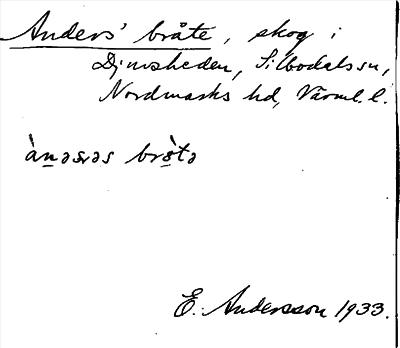 Anders' bråte, skog i
Djursheden, Silbodals sn,
Nordmarks hd, Värml. l.
bròtə
E. Andersson 1933.